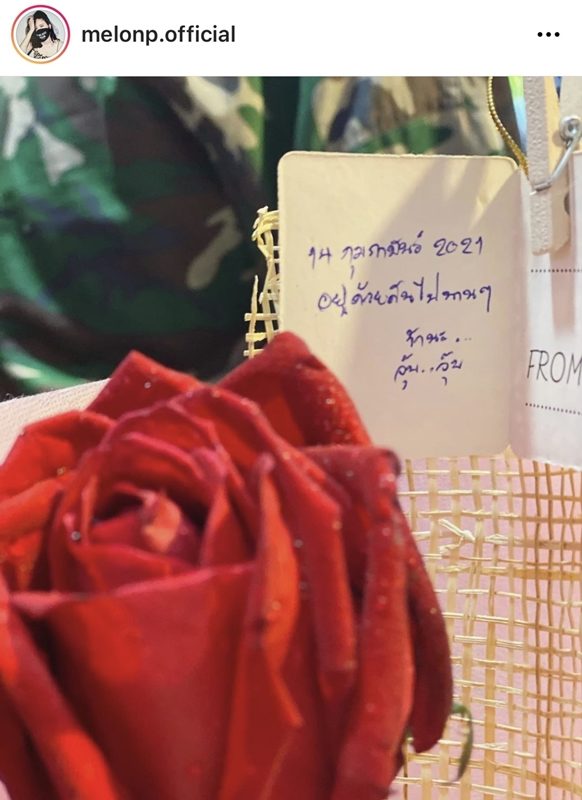 melonp.official
14 กุมภาพันธ์ 2021
อยู่ด้วยกันไปนานๆ
รักนะ...
จุ๊บ..จุ๊บ
FROM